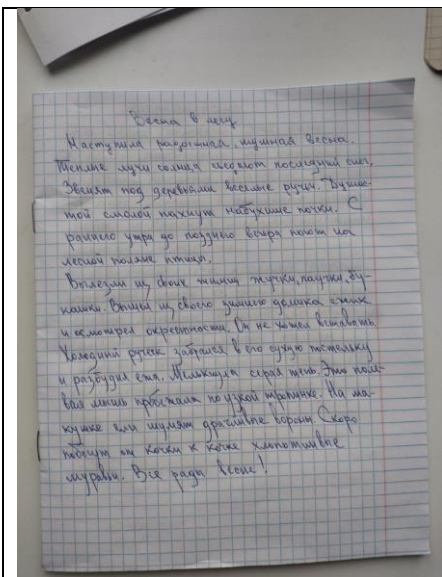 Весна в лесу.
Наступила радостная, шумная весна.
Теплые лучи солнца съедают последний снег.
Звенят под деревьями веселые ручьи. Душис-
той смолой пахнут набухшие почки. С
раннего утра до позднего вечера поют на
лесной поляне птицы.
Вылезли из своих жилищ жучки, паучки, бу-
кашки. Вышел из своего зимнего домика ежик
и осмотрел окрестности. Он не хотел вставать.
Холодный ручеек забрался в его сухую постельку
и разбудил ежа. Мелькнула серая тень. Это поле-
вая мышь пробежала по узкой тропинке. На ма-
кушке ели шумят драчливые вороны. Скоро
побегут от кочки к кочке хлопотливые
муравьи. Все рады весне!